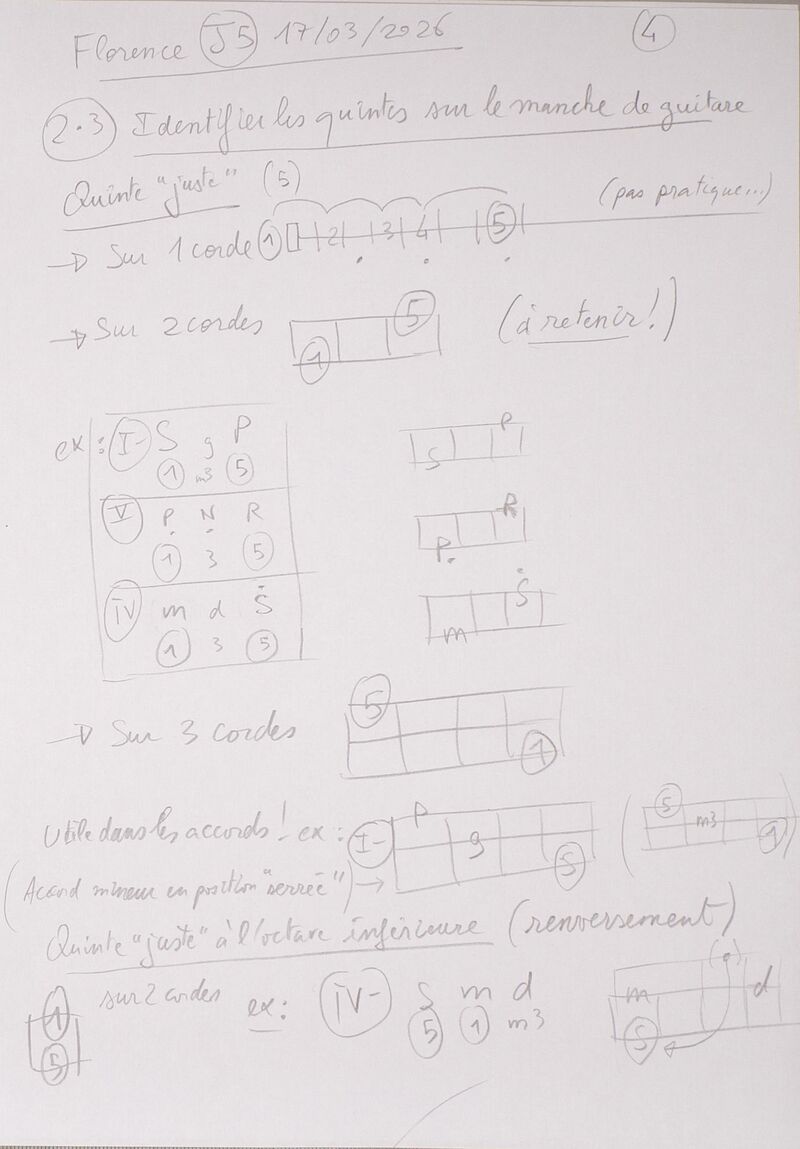 Florence J5 17/03/2026 4
2.3 Identifier les quintes sur le manche de guitare
Quinte "juste" (5)
→ Sur 1 corde 1 2 3 4 5 (pas pratique...)
→ Sur 2 cordes 1 5 (à retenir!)
ex: I- S g P
1 m3 5
S P
V P N R
1 3 5
P R
IV m d S
1 3 5
m S
→ Sur 3 cordes 5 1
Utile dans les accords! ex: I- P g S (5 m3 1)
(Accord mineur en position "serrée") →
Quinte "juste" à l'octave inférieure (renversement)
1 5 sur 2 cordes ex: IV- S m d
5 1 m3
m d S